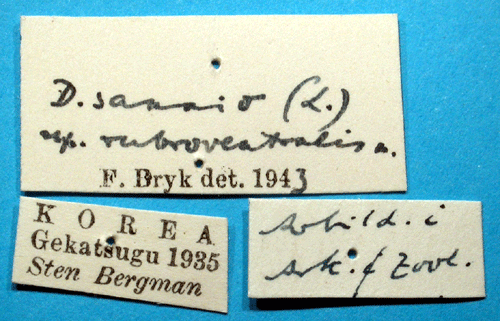 D. sannio (L.)
ssp. rubroventralis n.
F. Bryk det. 1943
KOREA
Gekatsugu 1935
Sten Bergman
Avbild. i
Ark. f Zool.